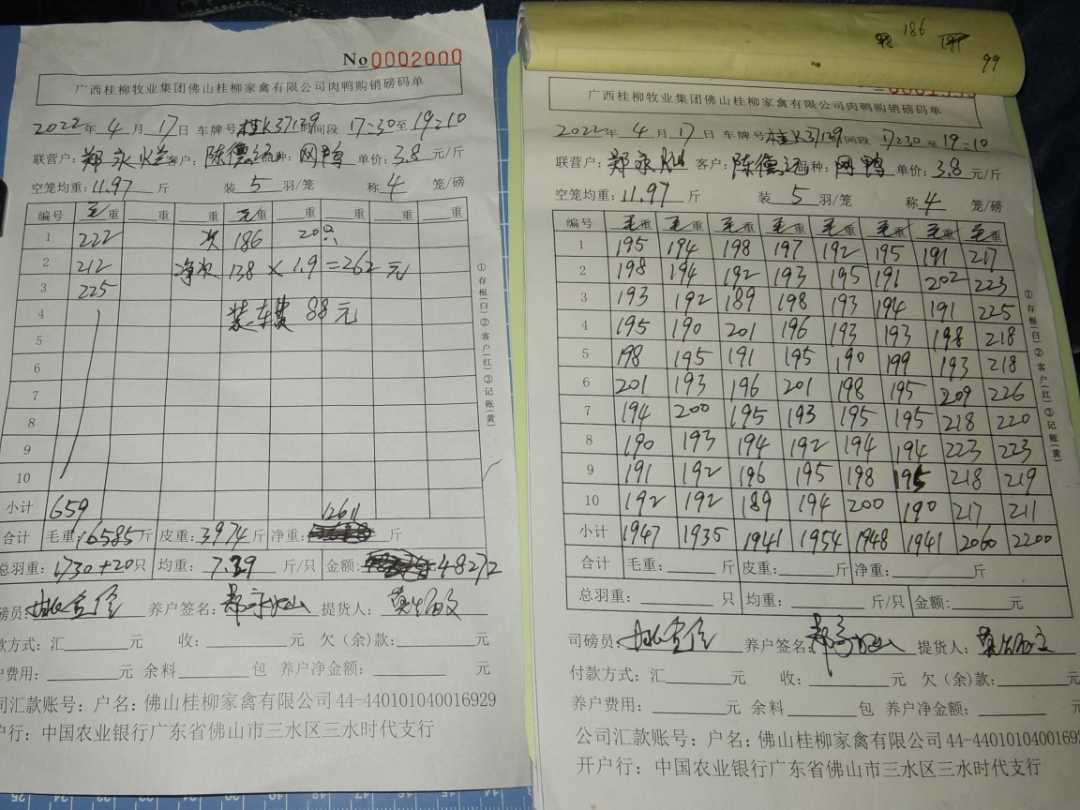 No 0002000
广西桂柳牧业集团佛山桂柳家禽有限公司肉鸭购销磅码单
2022年 4 月 17 日 车牌号 桂K37139 时间段 17:30 至 19:10
联营户: 郑永 客户: 陈德 品种: 网鸭 单价: 3.8 元/斤
空笼均重: 11.97 斤 装 5 羽/笼 称 4 笼/磅
编号 毛重 重 重 毛重 重 重 重 重
1 222 次 186 20只
2 212 净次 138 × 1.9 = 262 元
3 225
4 装车费 88元
5
6
7
8
9
10
小计 659
合计 毛重: 16585 斤 皮重: 3974 斤 净重: 12611 斤
总羽重: 1730+20 只 均重: 7.29 斤/只 金额: 48272
磅员: 养户签名: 提货人:
款方式: 汇 元 收: 元 欠(余)款: 元
户费用: 元 余料 包 养户净金额: 元
司汇款账号: 户名: 佛山桂柳家禽有限公司 44-440101040016929
户行: 中国农业银行广东省佛山市三水区三水时代支行
①存根(白)②客户(红)③记账(黄)
186
99
广西桂柳牧业集团佛山桂柳家禽有限公司肉鸭购销磅码单
2022年 4 月 17 日 车牌号 桂K37139 17:30 至 19:10
联营户: 郑永 客户: 陈德 品种: 网鸭 单价: 3.8 元/斤
空笼均重: 11.97 斤 装 5 羽/笼 称 4 笼/磅
编号 毛重 毛重 毛重 毛重 毛重 毛重 毛重 毛重
1 195 194 198 197 192 195 191 217
2 198 194 192 193 195 191 202 223
3 193 192 189 198 193 194 191 225
4 195 190 201 196 193 193 198 218
5 198 195 191 195 190 199 193 218
6 201 193 196 201 198 195 209 226
7 194 200 195 193 195 195 218 220
8 190 193 194 192 194 194 223 223
9 191 192 196 195 198 195 218 219
10 192 192 189 194 200 190 217 211
小计 1947 1935 1941 1954 1948 1941 2060 2200
合计 毛重: 斤 皮重: 斤 净重: 斤
总羽重: 只 均重: 斤/只 金额: 元
司磅员: 养户签名: 提货人:
付款方式: 汇 元 收: 元 欠(余)款: 元
养户费用: 元 余料 包 养户净金额: 元
公司汇款账号: 户名: 佛山桂柳家禽有限公司 44-4401010400169
开户行: 中国农业银行广东省佛山市三水区三水时代支行
①存根(白)②客户(红)③记账(黄)